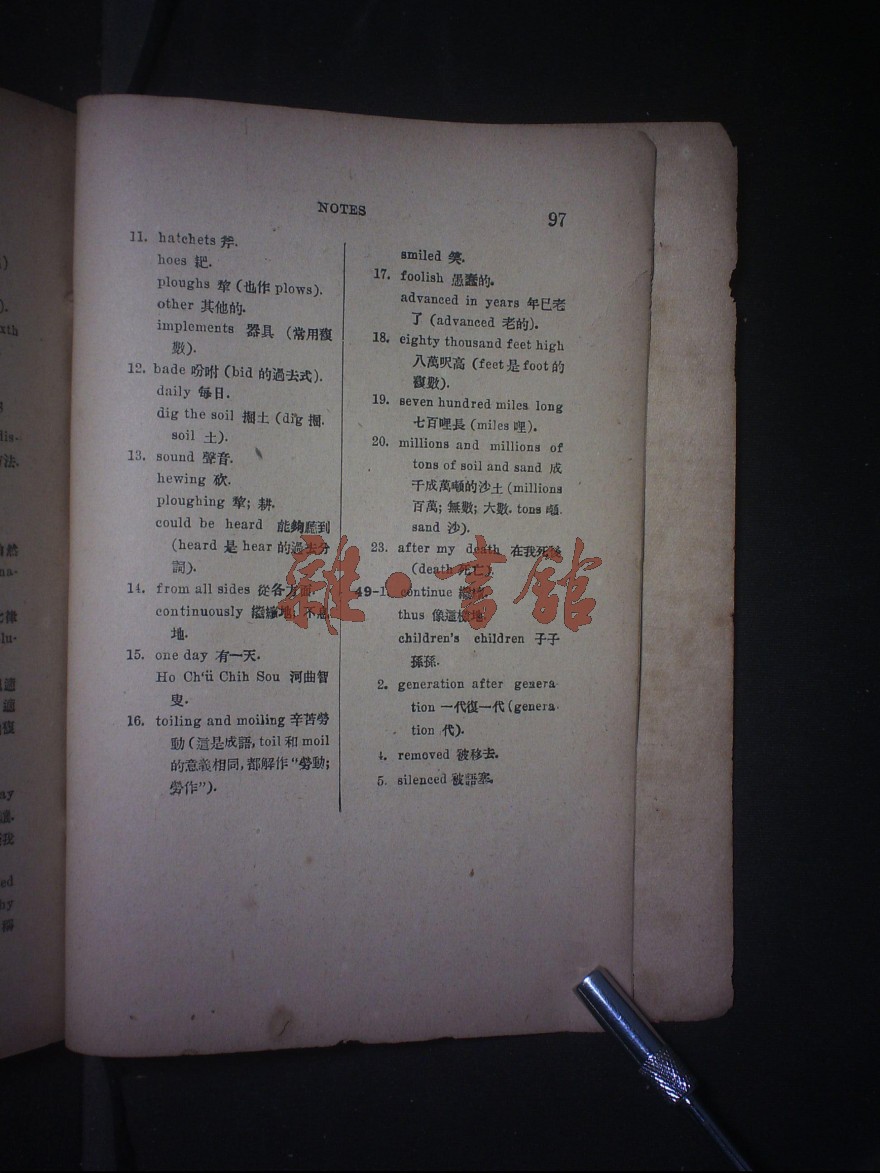 NOTES
97
11. hatchets 斧.
hoes 耙.
ploughs 犂 (也作 plows).
other 其他的.
implements 器具 (常用複
數).
12. bade 吩咐 (bid 的過去式).
daily 每日.
dig the soil 掘土 (dig 掘.
soil 土).
13. sound 聲音.
hewing 砍.
ploughing 犂; 耕.
could be heard 能夠聽到
(heard 是 hear 的過去分
詞).
14. from all sides 從各方面.
continuously 繼續地, 不息
地.
15. one day 有一天.
Ho Ch'ü Chih Sou 河曲智
叟.
16. toiling and moiling 辛苦勞
動 (這是成語, toil 和 moil
的意義相同, 都解作 "勞動;
勞作").
smiled 笑.
17. foolish 愚蠢的.
advanced in years 年已老
了 (advanced 老的).
18. eighty thousand feet high
八萬呎高 (feet 是 foot 的
複數).
19. seven hundred miles long
七百哩長 (miles 哩).
20. millions and millions of
tons of soil and sand 成
千成萬噸的沙土 (millions
百萬; 無數; 大數. tons 噸.
sand 沙).
23. after my death 在我死後
(death 死亡).
49-1. continue 繼續.
thus 像這樣地.
children's children 子子
孫孫.
2. generation after genera-
tion 一代復一代 (genera-
tion 代).
4. removed 被移去.
5. silenced 被語塞.
雜·書館